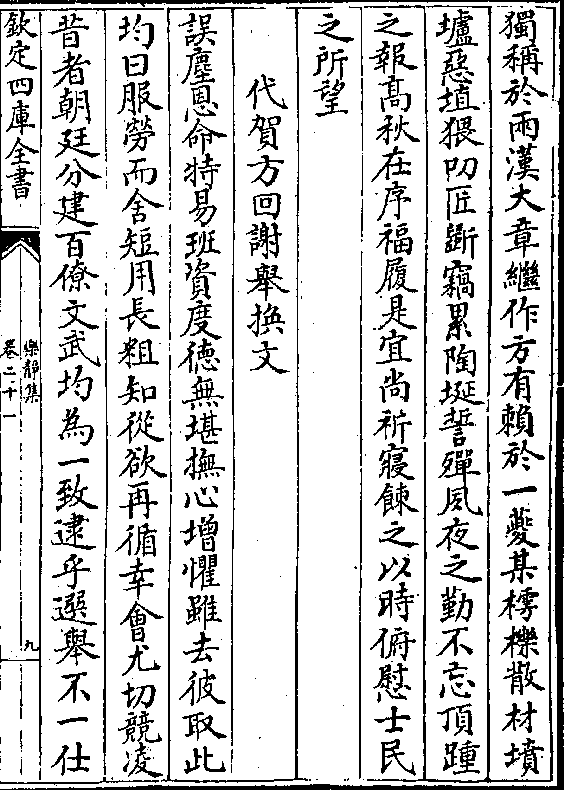 獨稱於兩漢大章繼作方有賴於一夔某樗櫟散材墳
壚惡埴猥叨匠斲竊累陶埏誓殫夙夜之勤不忘頂踵
之報髙秋在序福履是宜尚祈寢餗之以時俯慰士民
之所望
代賀方回謝舉換文
誤塵恩命特易班資度徳無堪撫心增懼雖去彼取此
均曰服勞而舍短用長粗知從欲再循幸會尤切競凌
昔者朝廷分建百僚文武均為一致逮乎選舉不一仕
欽定四庫全書
樂靜集
卷二十一
九